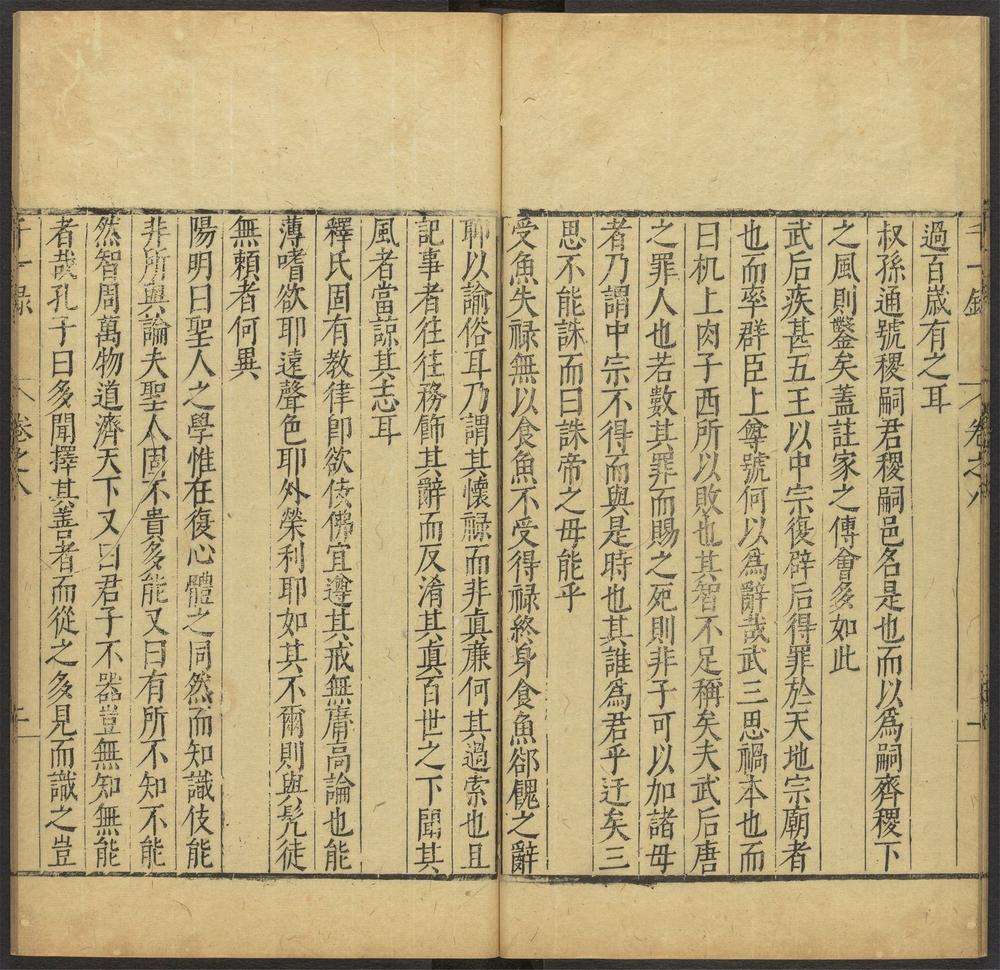 過百歲有之耳
叔孫通號稷嗣君稷嗣邑名是也而以爲嗣齊稷下
之風則鑿矣蓋註家之傳會多如此
武后疾甚五王以中宗復辟后得罪於天地宗廟者
也而率群臣上尊號何以爲辭哉武三思禍本也而
曰机上肉子西所以敗也其智不足稱矣夫武后唐
之罪人也若數其罪而賜之死則非子可以加諸母
者乃謂中宗不得而與是時也其誰爲君乎迂矣三
思不能誅而曰誅帝之母能乎
受魚失祿無以食魚不受得祿終身食魚郤餽之辭
聊以諭俗耳乃謂其懷祿而非真廉何其過索也且
記事者往往務飾其辭而反淆其真百世之下聞其
風者當諒其志耳
釋氏固有教律卽欲佞佛宜遵其戒無庸高論也能
薄嗜欲耶遠聲色耶外榮利耶如其不爾則與髡徒
無賴者何異
陽明曰聖人之學惟在復心體之同然而知識伎能
非所與論夫聖人固不貴多能又曰有所不知不能
然智周萬物道濟天下又曰君子不器豈無知無能
者哉孔子曰多聞擇其善者而從之多見而識之豈
千一錄
卷之八
一